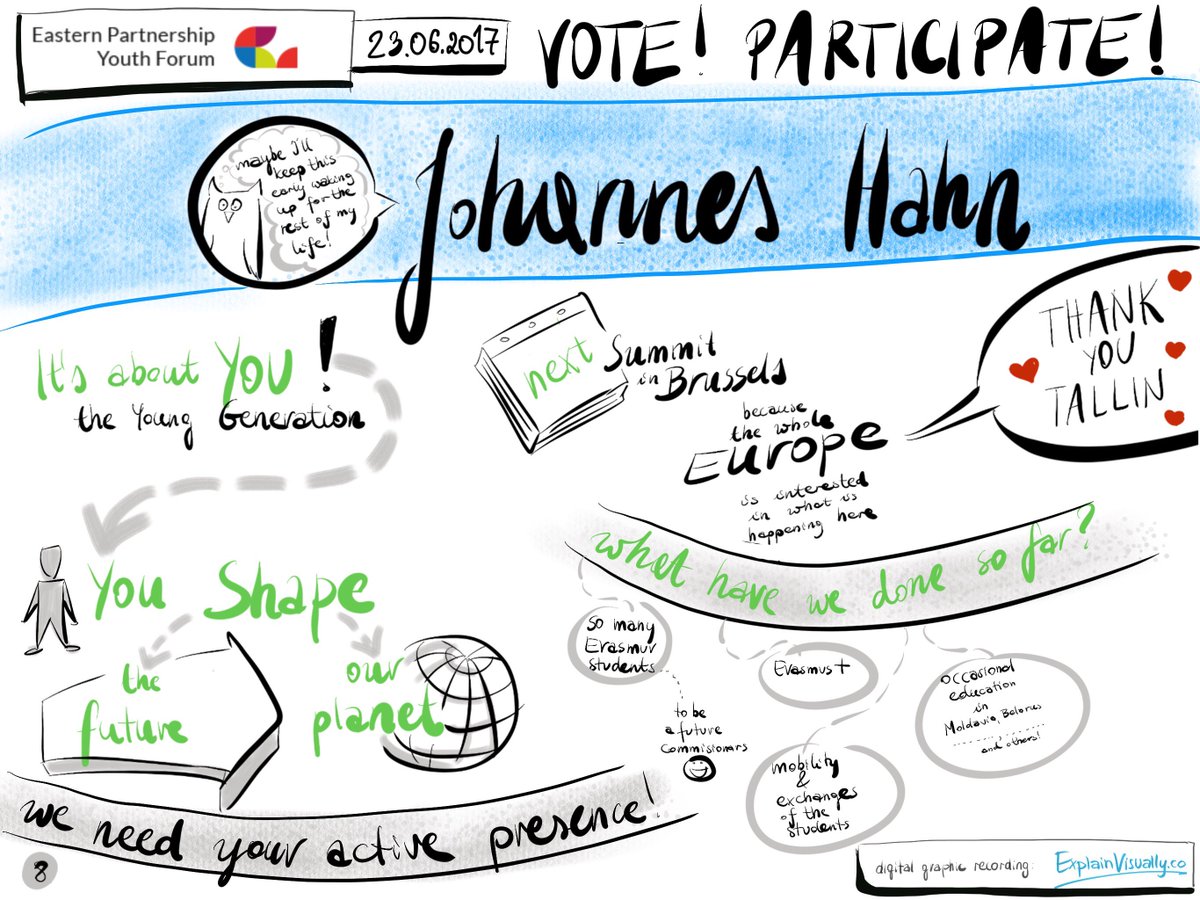 Eastern Partnership
Youth Forum
23.06.2017
VOTE! PARTICIPATE!
maybe I'll
keep this
early waking
up for the
rest of my
life!
Johannes Hahn
It's about YOU!
the Young Generation
next
Summit
in Brussels
because
the whole
Europe
is interested
in what is
happening here
THANK
YOU
TALLIN
You Shape
the
future
our
planet
we need your active presence!
what have we done so far?
so many
Erasmur
students
to be
a future
commisionars
Erasmus+
mobility
&
exchanges
of the
students
occasional
education
in
Moldavia, Belarus
and others!
8
digital graphic recording:
ExplainVisually.co